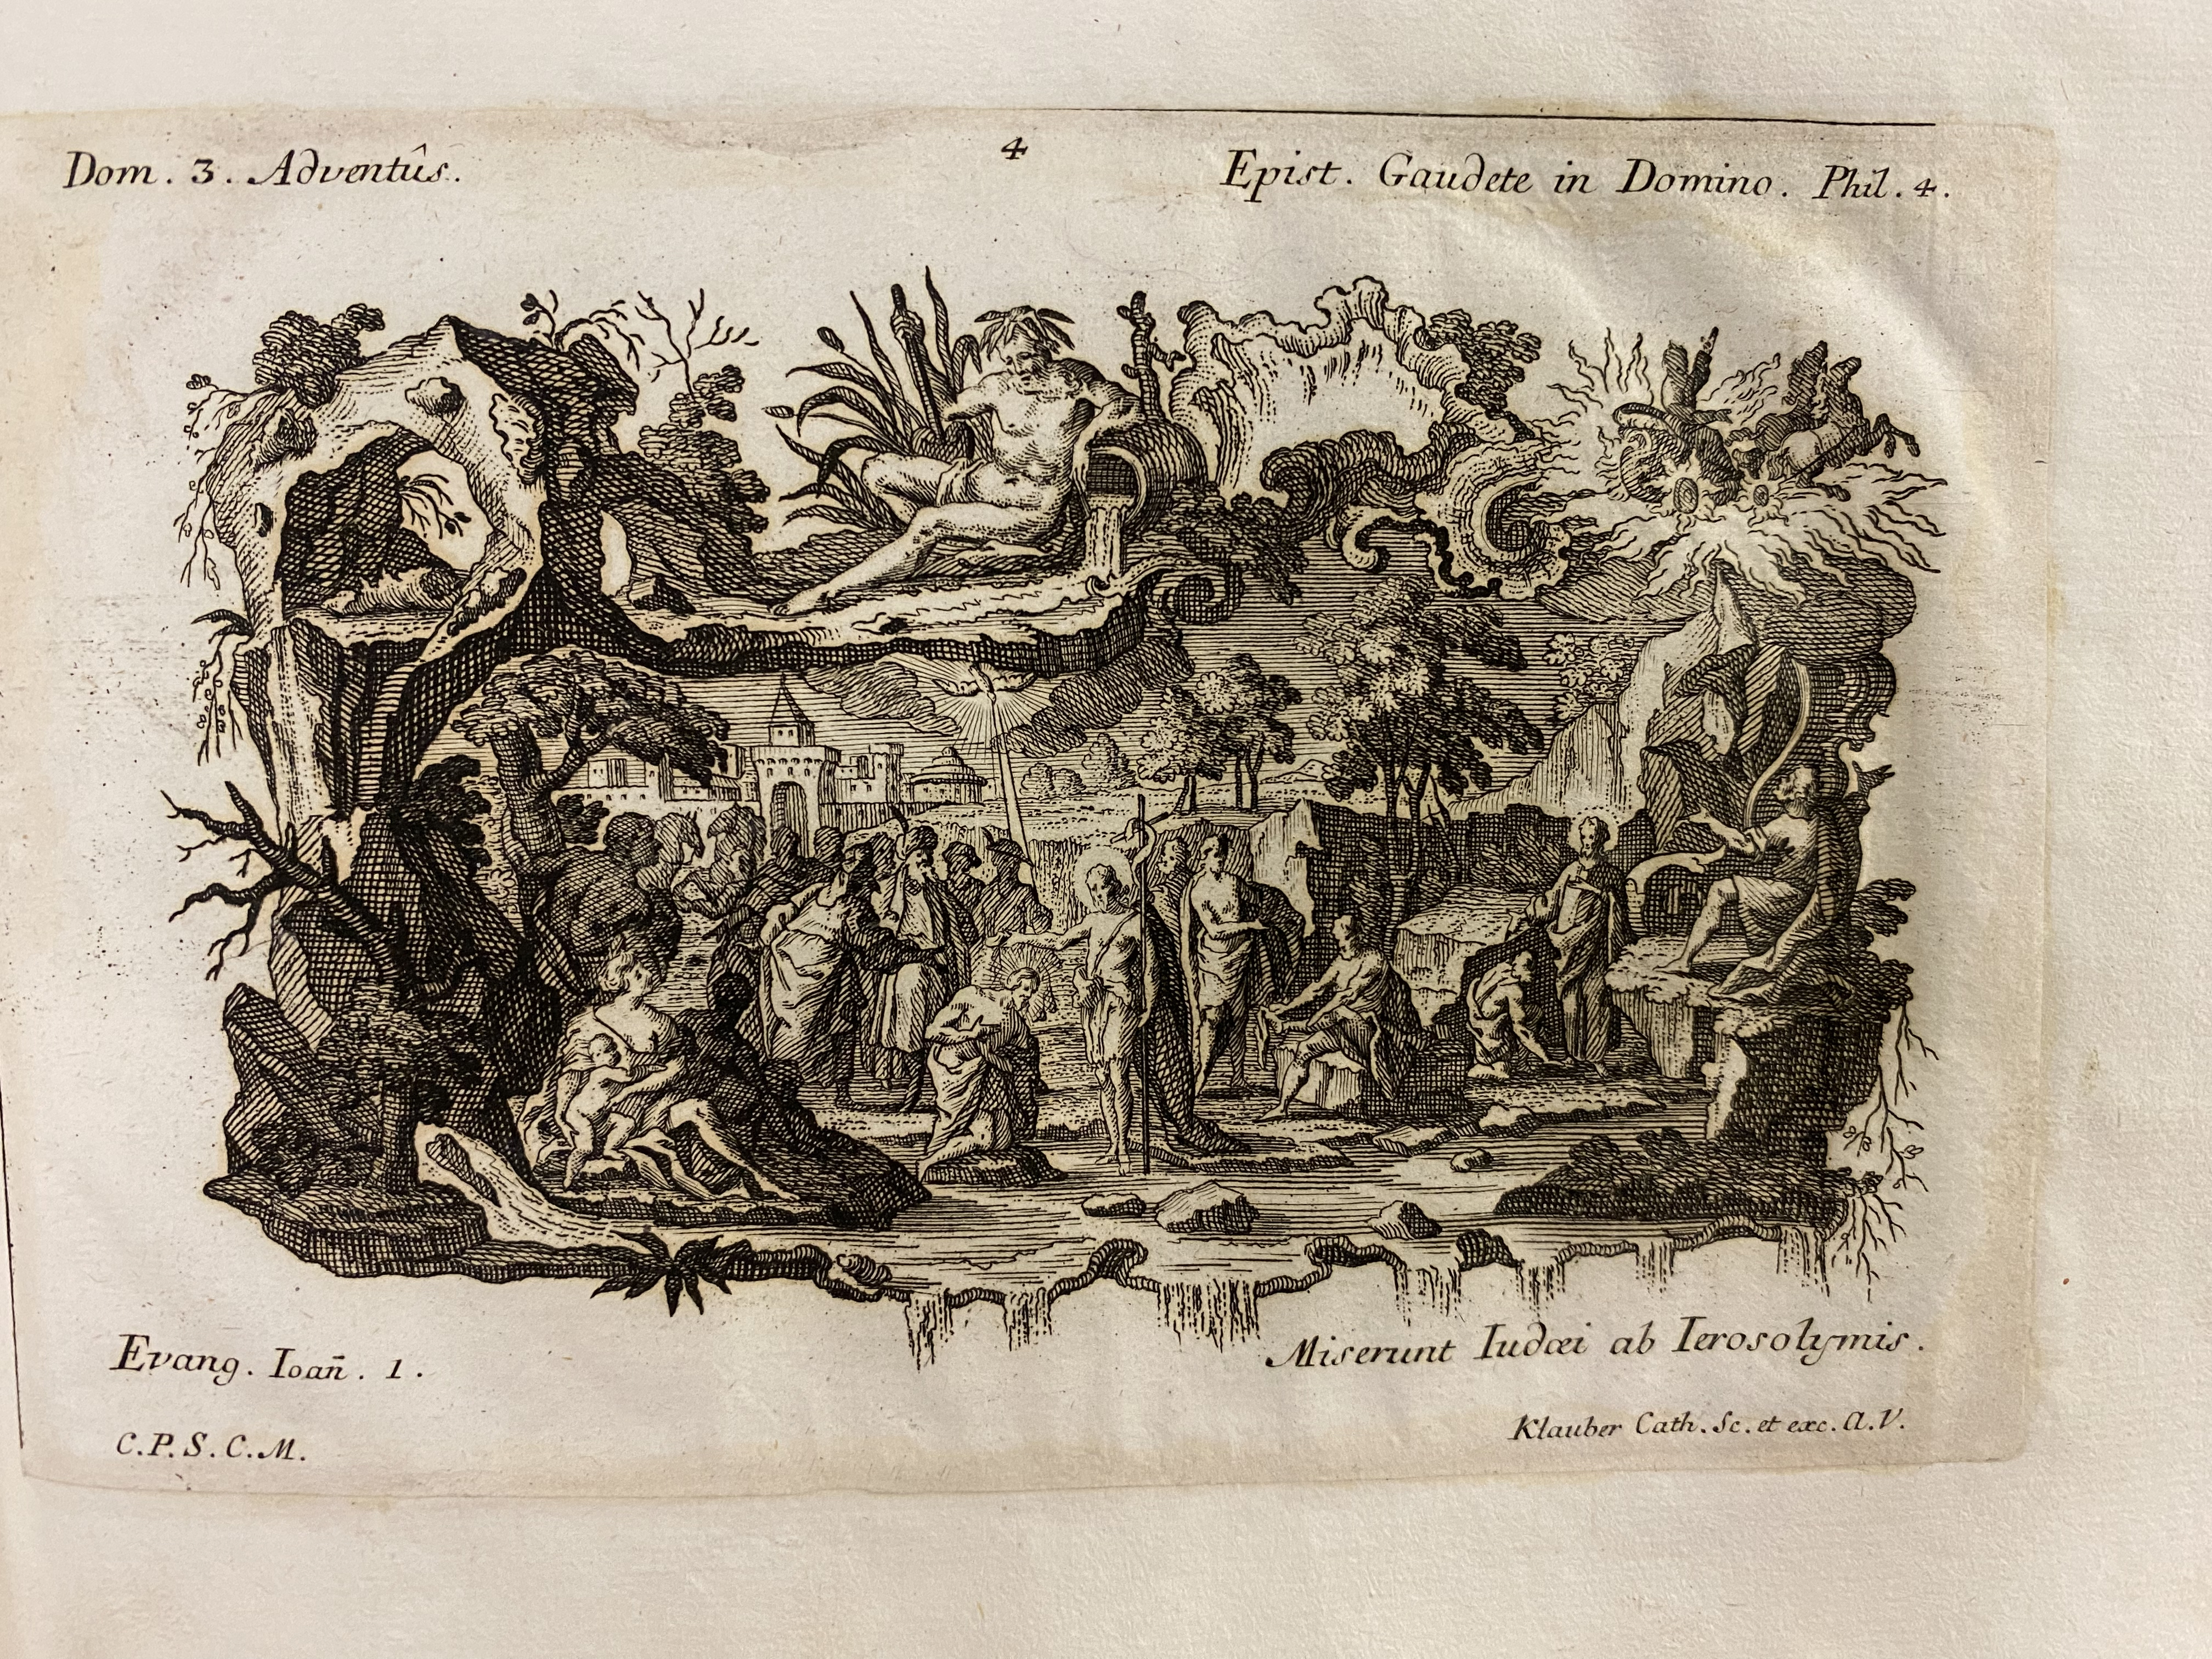 4
Dom. 3. Adventûs.
Epist. Gaudete in Domino. Phil. 4.
Evang. Ioan̄. 1.
Miserunt Iudæi ab Ierosolymis.
C.P.S.C.M.
Klauber Cath. Sc. et exc. A.V.